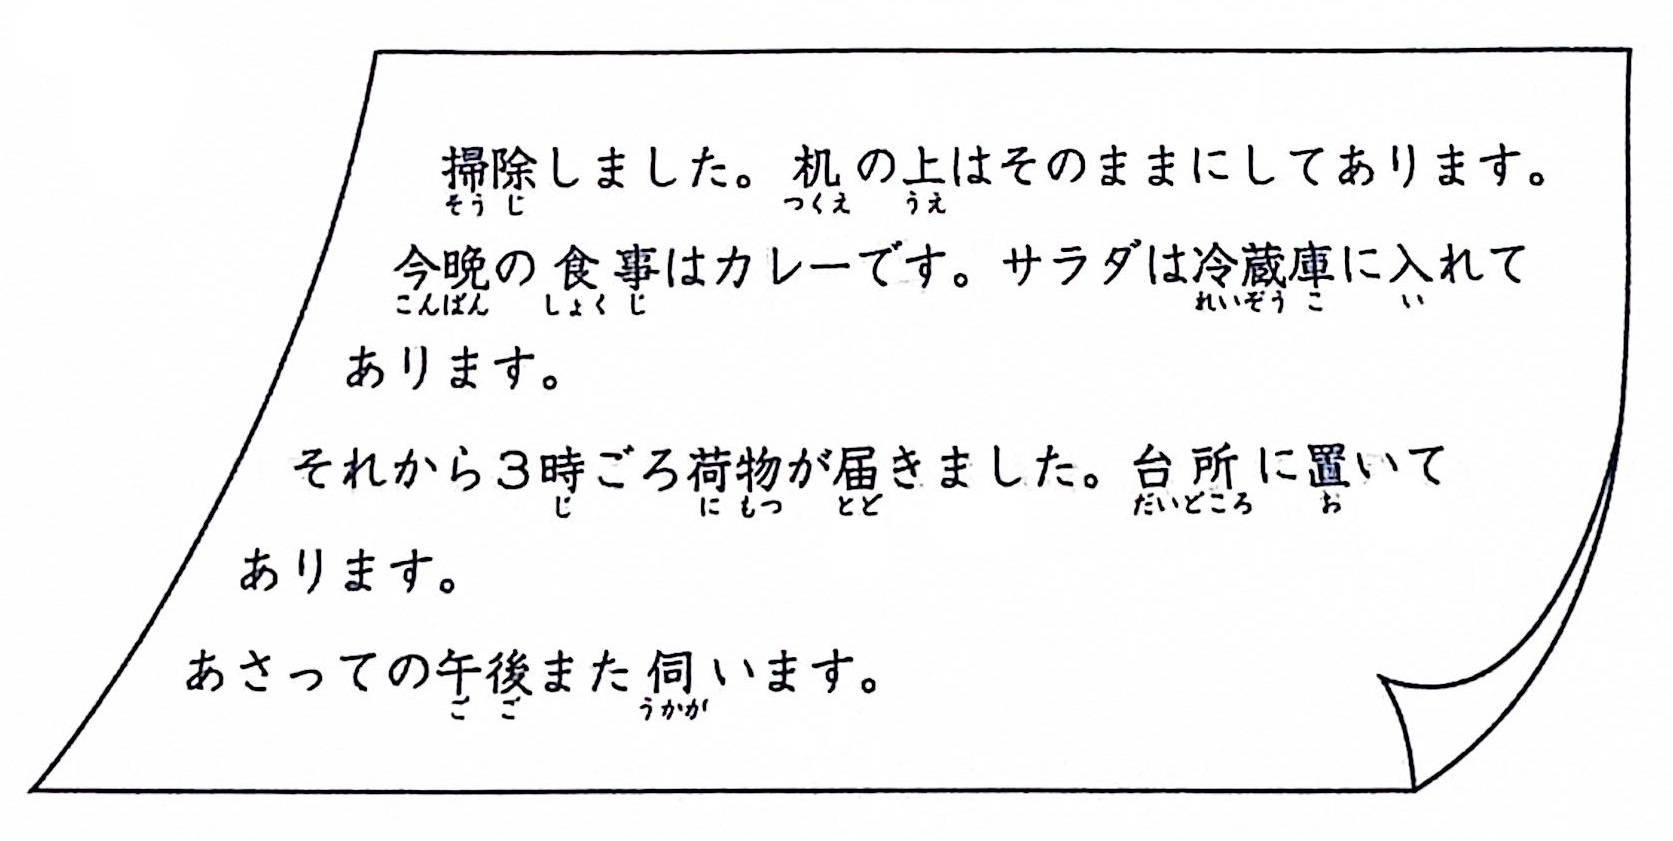 掃除しました。机の上はそのままにしてあります。
そうじ つくえ うえ
今晩の食事はカレーです。サラダは冷蔵庫に入れて
こんばん しょくじ れいぞうこ い
あります。
それから3時ごろ荷物が届きました。台所に置いて
じ にもつ とど だいどころ お
あります。
あさっての午後また伺います。
ごご うかが